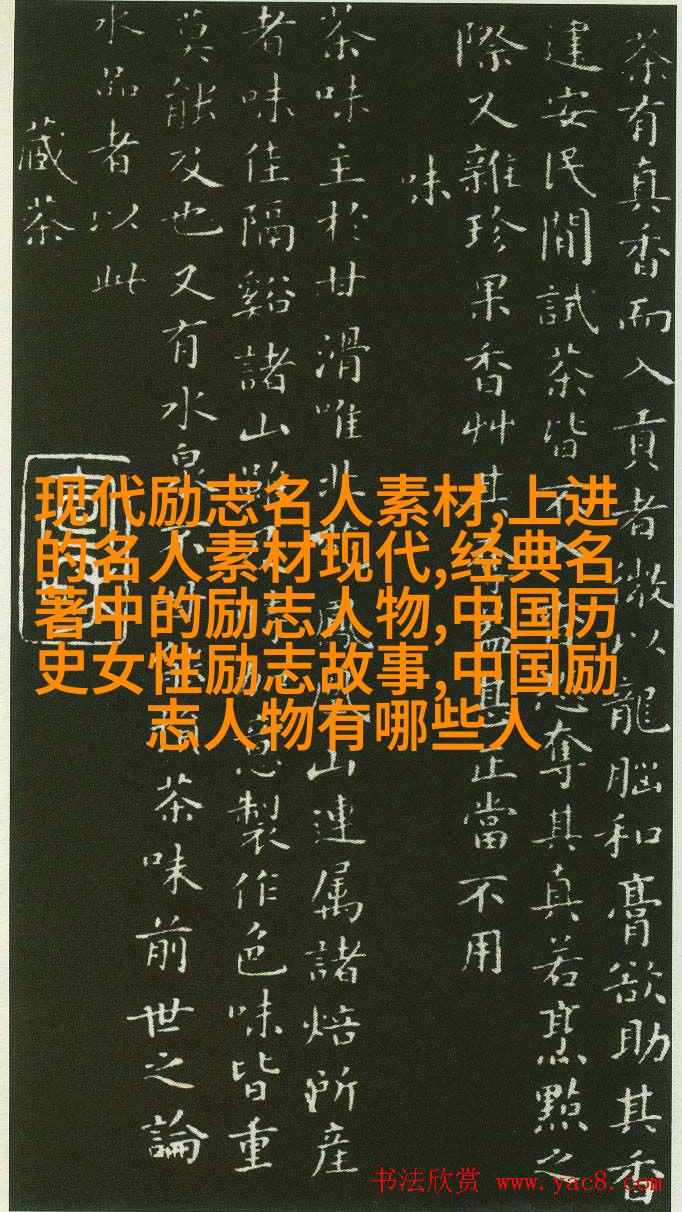 茶有真香而入貢者微以龍腦和膏欲助其香
建安民間試茶皆不奪其真若烹點之
際又雜珍果香艸其正當不用
味
茶味主於甘滑唯北鳳山連属諸焙所産
者味佳隔谿諸山意製作色味皆重
莫能及也又有水泉不茶味前世之論
水品者以此
藏茶
现代励志名人素材,上进
的名人素材现代,经典名
著中的励志人物,中国历
史女性励志故事,中国励
志人物有哪些人
书法欣赏 www.yac8.com